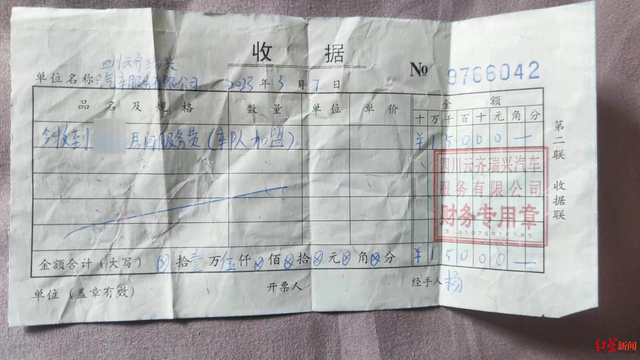 收据
四川云齐瑞兴
单位名称：汽车服务有限公司 2023年3月7日 № 9766042
品名及规格 数量 单位 单价 金额
十万千百十元角分
今收到 月间服务费（车队加盟） ¥15000—
四川云齐瑞兴汽车
服务有限公司
财务专用章
金额合计（大写）⊗拾壹万伍仟⊗佰⊗拾⊗元⊗角⊗分 ¥15000—
单位（盖章有效） 开票人 经手人 杨
第二联 收据联
红星新闻